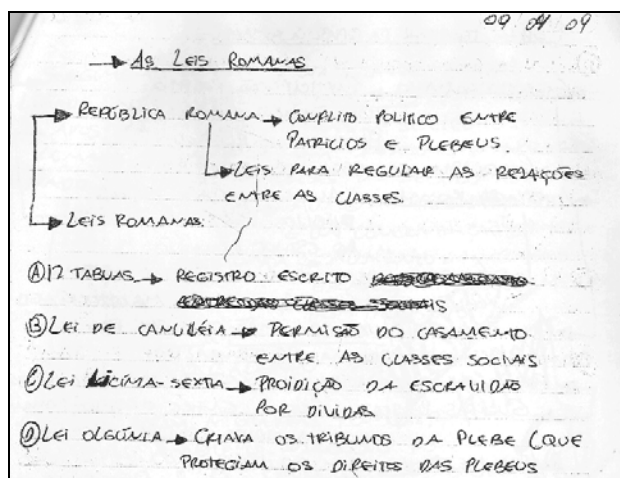 09.04.09
→ AS LEIS ROMANAS
→ REPÚBLICA ROMANA → CONFLITO POLÍTICO ENTRE
PATRÍCIOS E PLEBEUS.
→ LEIS PARA REGULAR AS RELAÇÕES
ENTRE AS CLASSES.
→ LEIS ROMANAS.
Ⓐ 12 TABUAS → REGISTRO ESCRITO
Ⓑ LEI DE CANULÉIA → PERMISÃO DO CASAMENTO
ENTRE AS CLASSES SOCIAIS
Ⓒ LEI LICÍMA-SEXTIA → PROIDIÇÃO DA ESCRAVIDÃO
POR DIVIDAS
Ⓓ LEI OLGÚNIA → CRIAVA OS TRIBUNOS DA PLEBE (QUE
PROTEGIAM OS DIREITOS DAS PLEBEUS